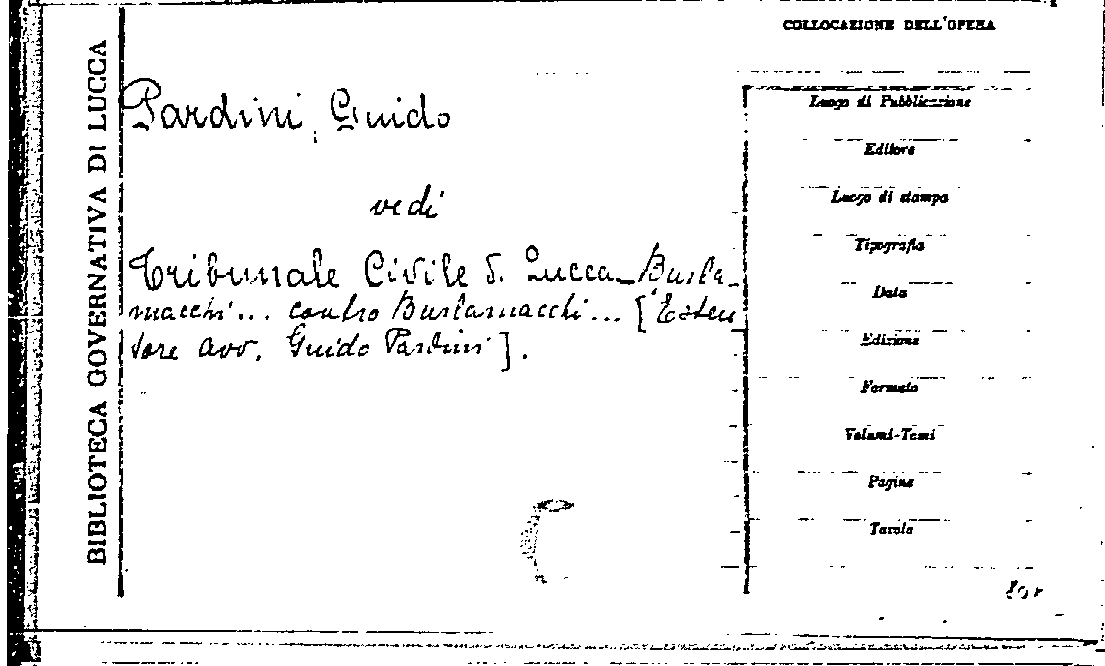 BIBLIOTECA GOVERNATIVA DI LUCCA
Pardini, Guido
vedi
Tribunale Civile di Lucca_Burla_
macchi... contro Burlamacchi... [Esten
sore avv. Guido Pardini].
COLLOCAZIONE DELL'OPERA
Luogo di Pubblicazione
Editore
Luogo di stampa
Tipografia
Data
Edizione
Formato
Volumi-Tomi
Pagine
Tavole